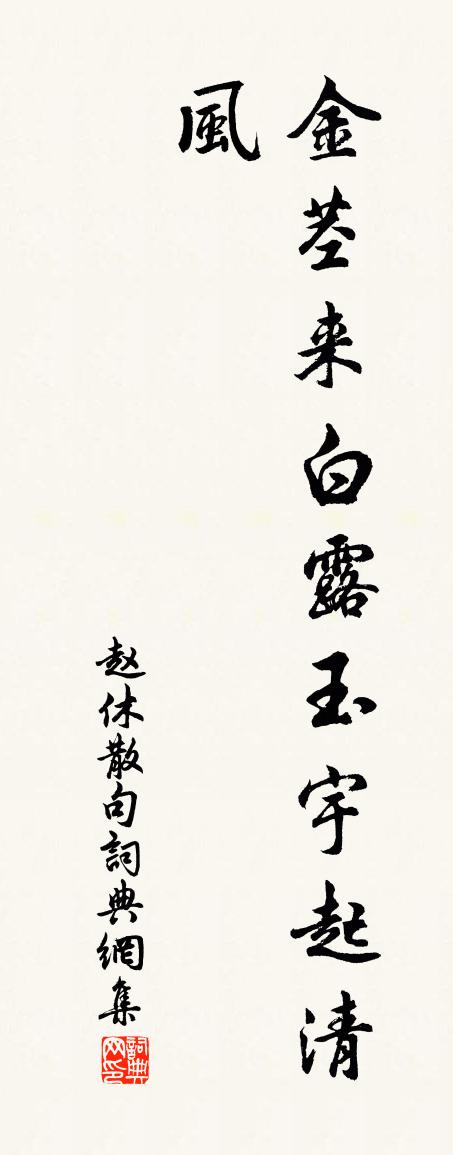 金茎来白露玉宇起清
風
赵休散句詞典網集
詞典网印